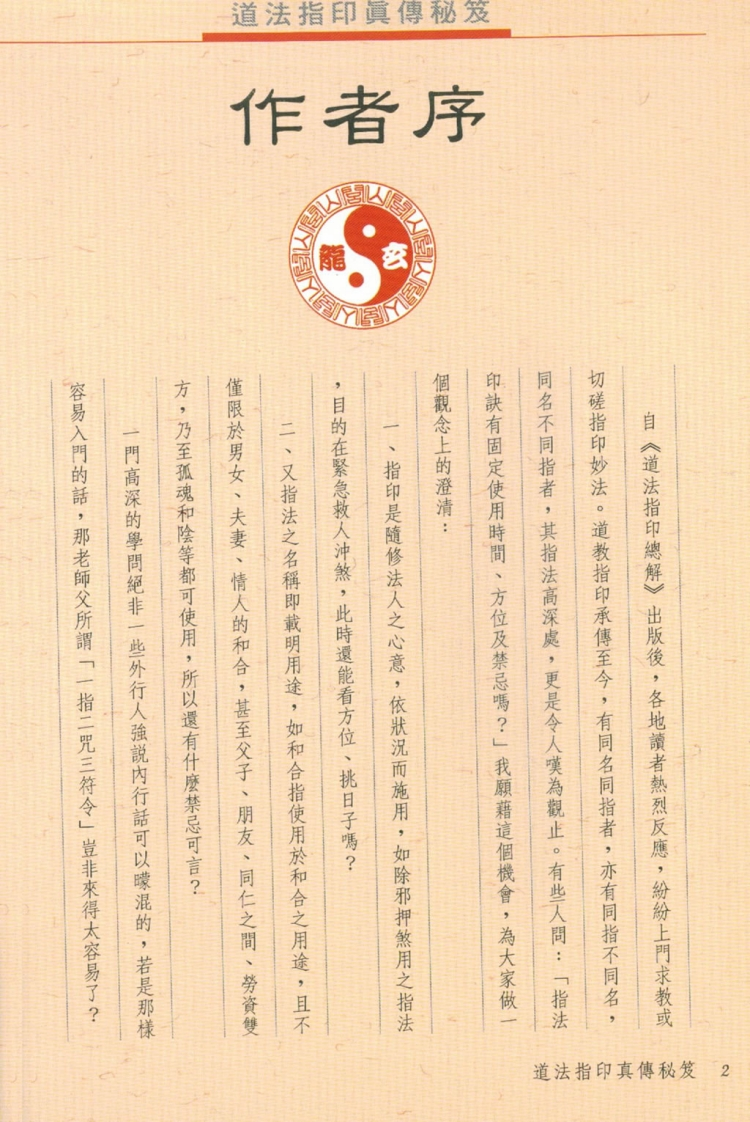 道法指印眞傳秘笈
作者序
龍 玄
自《道法指印總解》出版後，各地讀者熱烈反應，紛紛上門求教或
切磋指印妙法。道教指印承傳至今，有同名同指者，亦有同指不同名，
同名不同指者，其指法高深處，更是令人嘆為觀止。有些人問：「指法
印訣有固定使用時間、方位及禁忌嗎？」我願藉這個機會，為大家做一
個觀念上的澄清：
一、指印是隨修法人之心意，依狀況而施用，如除邪押煞用之指法
，目的在緊急救人沖煞，此時還能看方位、挑日子嗎？
二、又指法之名稱即載明用途，如和合指使用於和合之用途，且不
僅限於男女、夫妻、情人的和合，甚至父子、朋友、同仁之間、勞資雙
方，乃至孤魂和陰等都可使用，所以還有什麼禁忌可言？
一門高深的學問絕非一些外行人強說內行話可以矇混的，若是那樣
容易入門的話，那老師父所謂「一指二咒三符令」豈非來得太容易了？
道法指印真傳秘笈 2